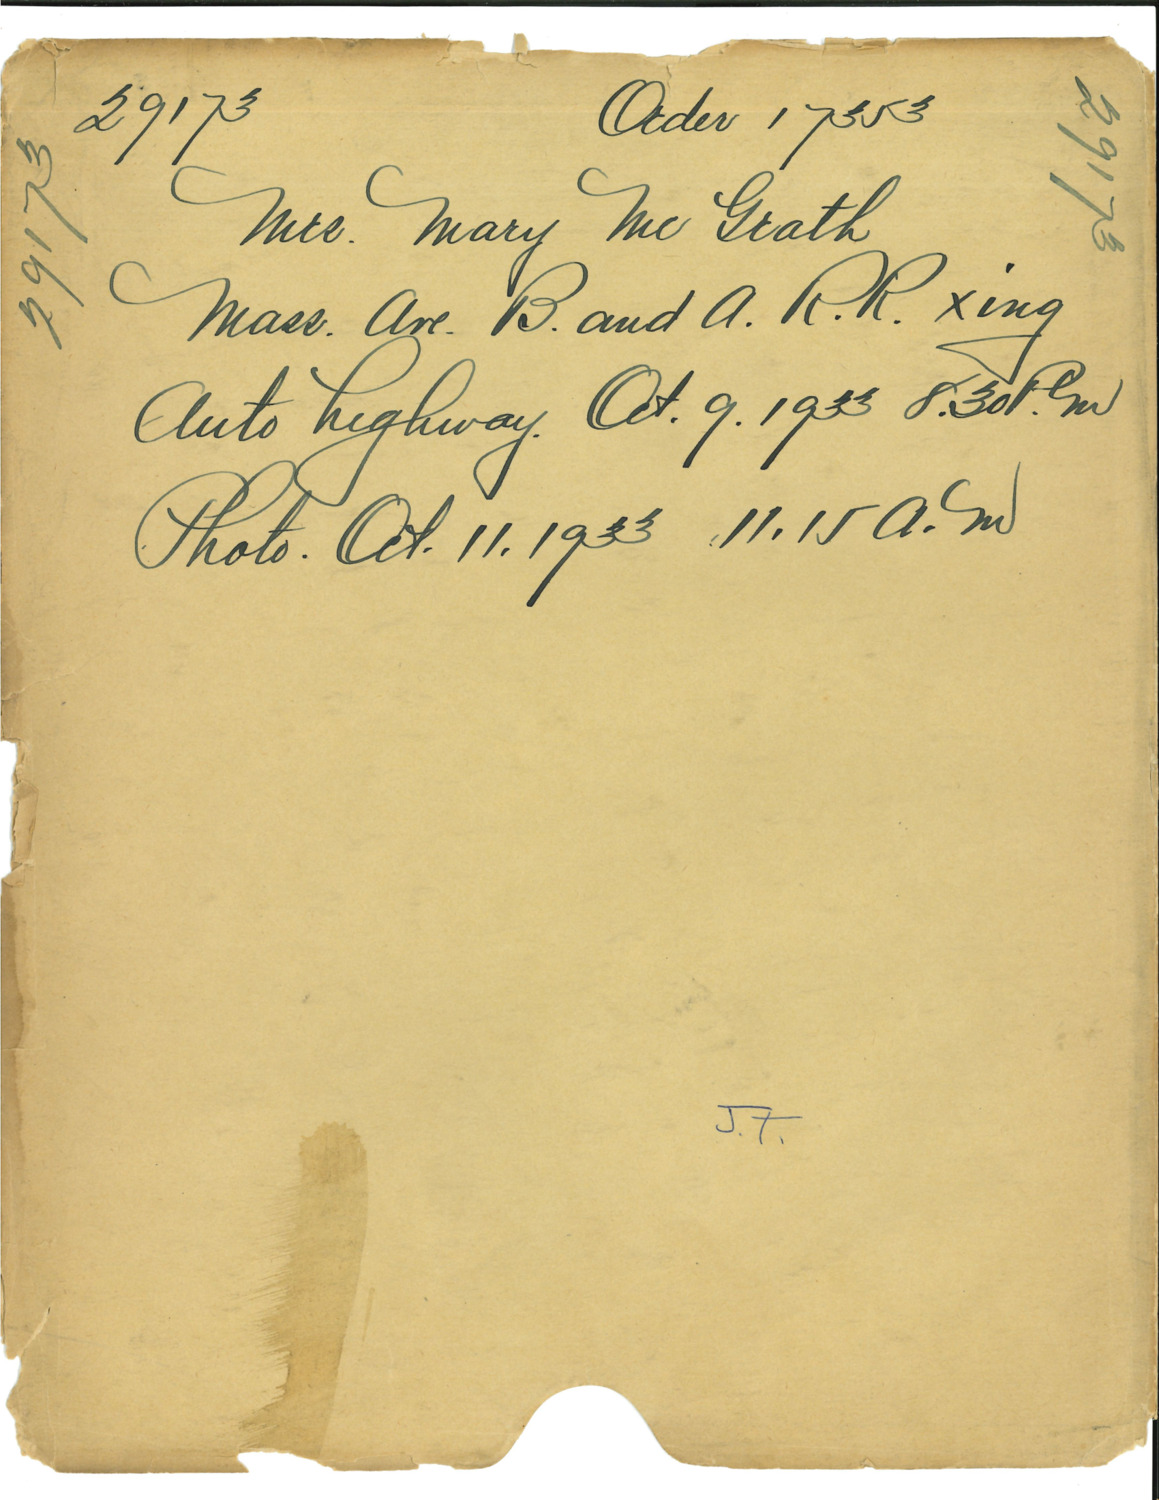 29173 Order 17353
29173
29173
Mrs. Mary Mc Grath
Mass. Ave. B. and A. R.R. xing
Auto highway. Oct. 9. 1933 8.30 P.M
Photo. Oct. 11. 1933 11.15 A.M
J.F.